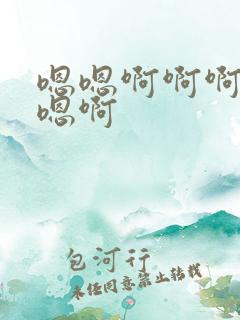 嗯嗯啊啊啊
嗯啊
包河行
未经同意禁止转载